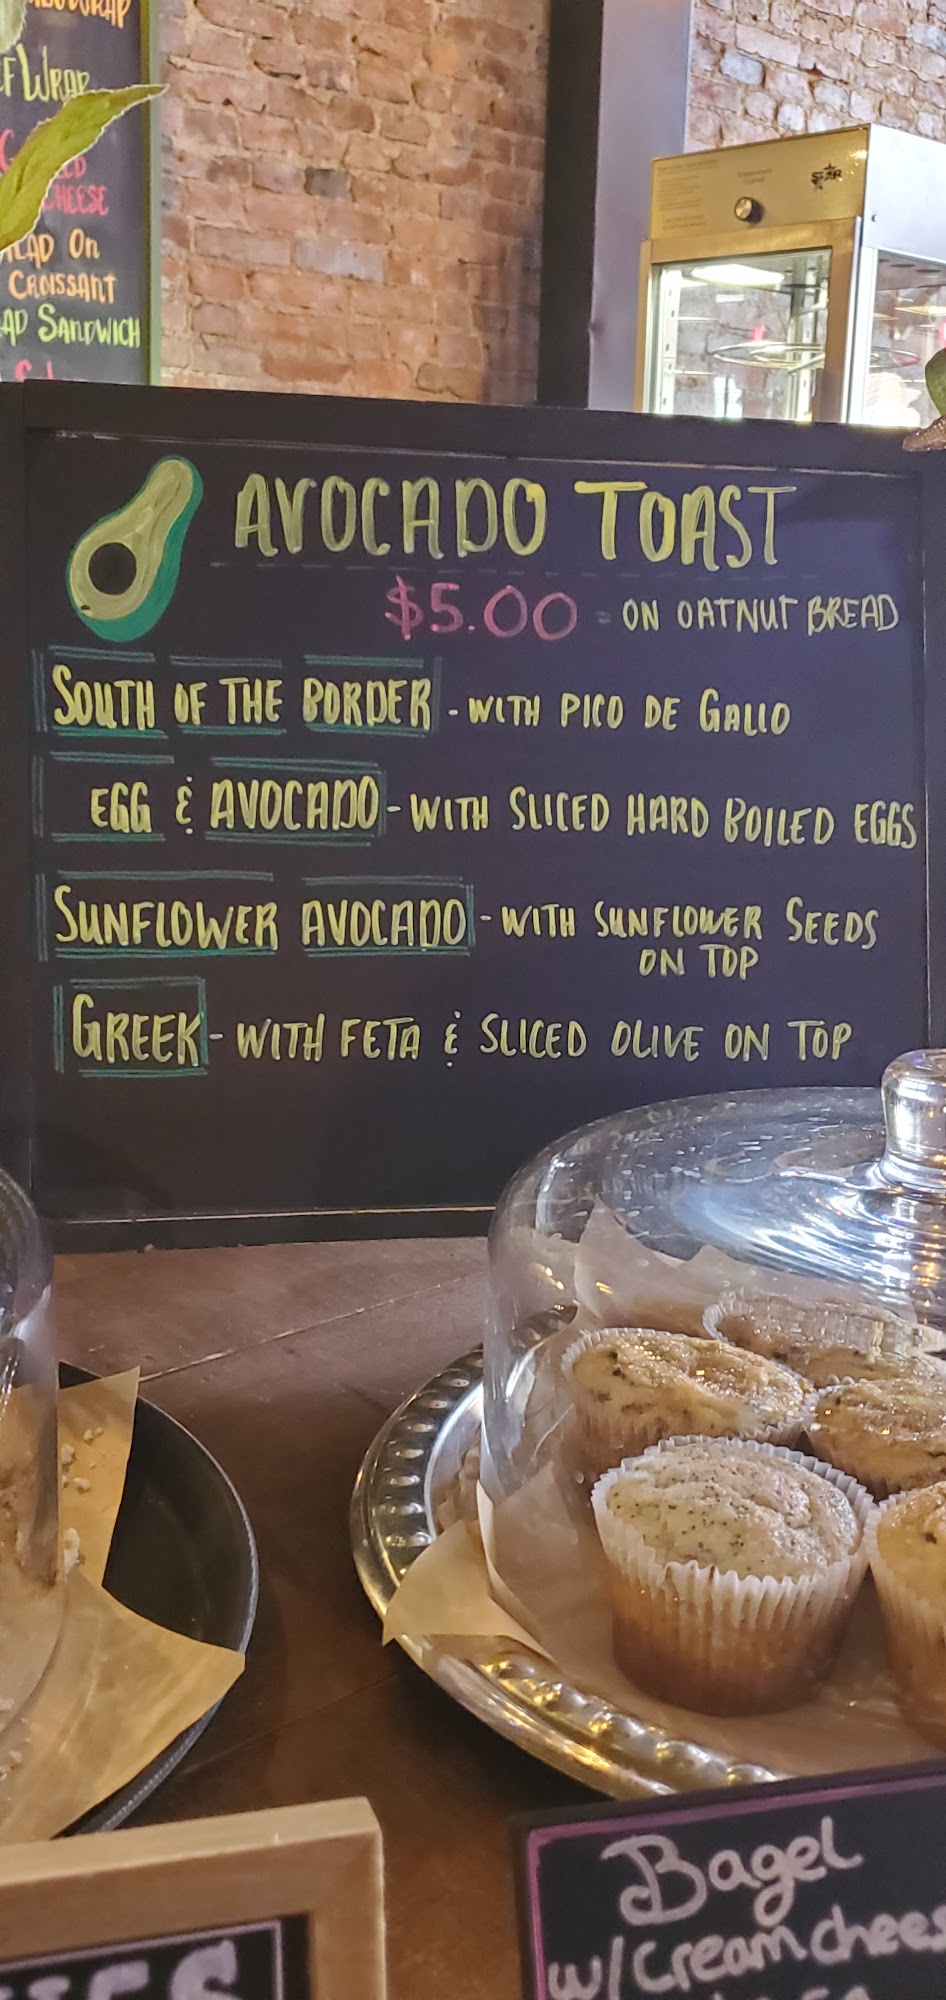 WRAP
WRAP
CHEESE
ON
CROISSANT
SANDWICH
STAR
AVOCADO TOAST
$5.00 - ON OATNUT BREAD
SOUTH OF THE BORDER - WITH PICO DE GALLO
EGG & AVOCADO - WITH SLICED HARD BOILED EGGS
SUNFLOWER AVOCADO - WITH SUNFLOWER SEEDS
ON TOP
GREEK - WITH FETA & SLICED OLIVE ON TOP
Bagel
w/Cream chees